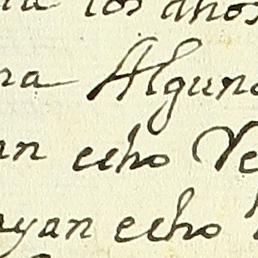 los años
na Alguna
an echo Ve
ayan echo